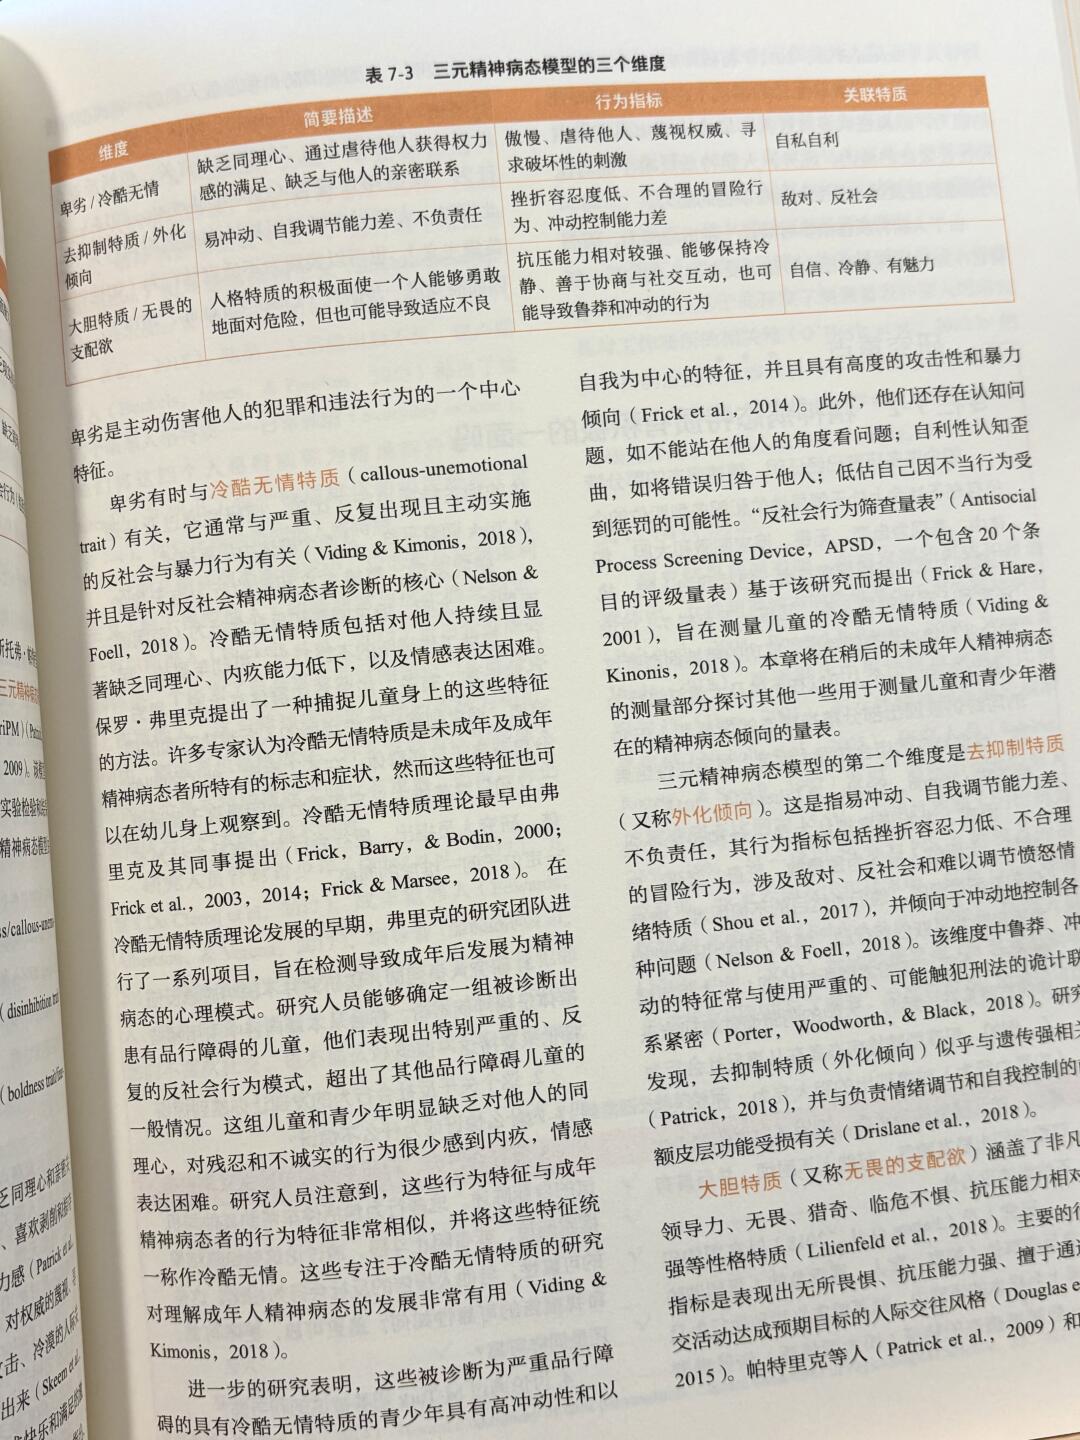 表 7-3 三元精神病态模型的三个维度
维度
简要描述
行为指标
关联特质
卑劣 / 冷酷无情
缺乏同理心、通过虐待他人获得权力
感的满足、缺乏与他人的亲密联系
傲慢、虐待他人、蔑视权威、寻
求破坏性的刺激
自私自利
去抑制特质 / 外化
倾向
易冲动、自我调节能力差、不负责任
挫折容忍度低、不合理的冒险行
为、冲动控制能力差
敌对、反社会
大胆特质 / 无畏的
支配欲
人格特质的积极面使一个人能够勇敢
地面对危险，但也可能导致适应不良
抗压能力相对较强、能够保持冷
静、善于协商与社交互动，也可
能导致鲁莽和冲动的行为
自信、冷静、有魅力
卑劣是主动伤害他人的犯罪和违法行为的一个中心
特征。
卑劣有时与冷酷无情特质（callous-unemotional
trait）有关，它通常与严重、反复出现且主动实施
的反社会与暴力行为有关（Viding & Kimonis，2018），
并且是针对反社会精神病态者诊断的核心（Nelson &
Foell，2018）。冷酷无情特质包括对他人持续且显
著缺乏同理心、内疚能力低下，以及情感表达困难。
保罗·弗里克提出了一种捕捉儿童身上的这些特征
的方法。许多专家认为冷酷无情特质是未成年及成年
精神病态者所特有的标志和症状，然而这些特征也可
以在幼儿身上观察到。冷酷无情特质理论最早由弗
里克及其同事提出（Frick，Barry，& Bodin，2000；
Frick et al.，2003，2014；Frick & Marsee，2018）。在
冷酷无情特质理论发展的早期，弗里克的研究团队进
行了一系列项目，旨在检测导致成年后发展为精神
病态的心理模式。研究人员能够确定一组被诊断出
患有品行障碍的儿童，他们表现出特别严重的、反
复的反社会行为模式，超出了其他品行障碍儿童的
一般情况。这组儿童和青少年明显缺乏对他人的同
理心，对残忍和不诚实的行为很少感到内疚，情感
表达困难。研究人员注意到，这些行为特征与成年
精神病态者的行为特征非常相似，并将这些特征统
一称作冷酷无情。这些专注于冷酷无情特质的研究
对理解成年人精神病态的发展非常有用（Viding &
Kimonis，2018）。
进一步的研究表明，这些被诊断为严重品行障
碍的具有冷酷无情特质的青少年具有高冲动性和以
自我为中心的特征，并且具有高度的攻击性和暴力
倾向（Frick et al.，2014）。此外，他们还存在认知问
题，如不能站在他人的角度看问题；自利性认知歪
曲，如将错误归咎于他人；低估自己因不当行为受
到惩罚的可能性。“反社会行为筛查量表”（Antisocial
Process Screening Device，APSD，一个包含 20 个条
目的评级量表）基于该研究而提出（Frick & Hare，
2001），旨在测量儿童的冷酷无情特质（Viding &
Kinonis，2018）。本章将在稍后的未成年人精神病态
的测量部分探讨其他一些用于测量儿童和青少年潜
在的精神病态倾向的量表。
三元精神病态模型的第二个维度是去抑制特质
（又称外化倾向）。这是指易冲动、自我调节能力差、
不负责任，其行为指标包括挫折容忍力低、不合理
的冒险行为，涉及敌对、反社会和难以调节愤怒情
绪特质（Shou et al.，2017），并倾向于冲动地控制各
种问题（Nelson & Foell，2018）。该维度中鲁莽、冲
动的特征常与使用严重的、可能触犯刑法的诡计联
系紧密（Porter，Woodworth，& Black，2018）。研究
发现，去抑制特质（外化倾向）似乎与遗传强相关
（Patrick，2018），并与负责情绪调节和自我控制的
额皮层功能受损有关（Drislane et al.，2018）。
大胆特质（又称无畏的支配欲）涵盖了非凡
领导力、无畏、猎奇、临危不惧、抗压能力相对
强等性格特质（Lilienfeld et al.，2018）。主要的行
指标是表现出无所畏惧、抗压能力强、擅于通过
交活动达成预期目标的人际交往风格（Douglas e
2015）。帕特里克等人（Patrick et al.，2009）和